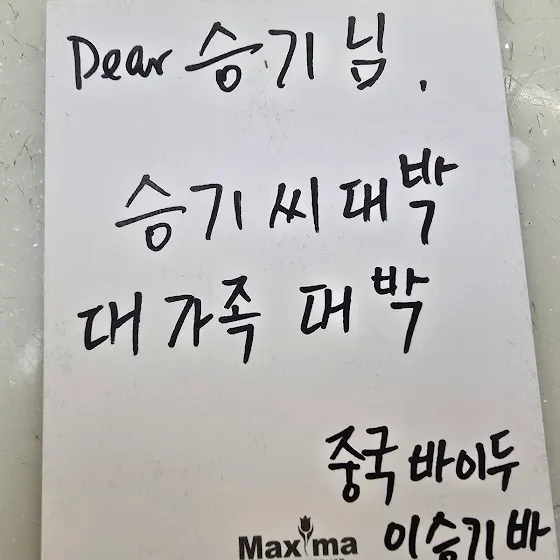 Dear 승기님.
승기씨대박
대가족 대박
중국바이두
Maxima 이승기바